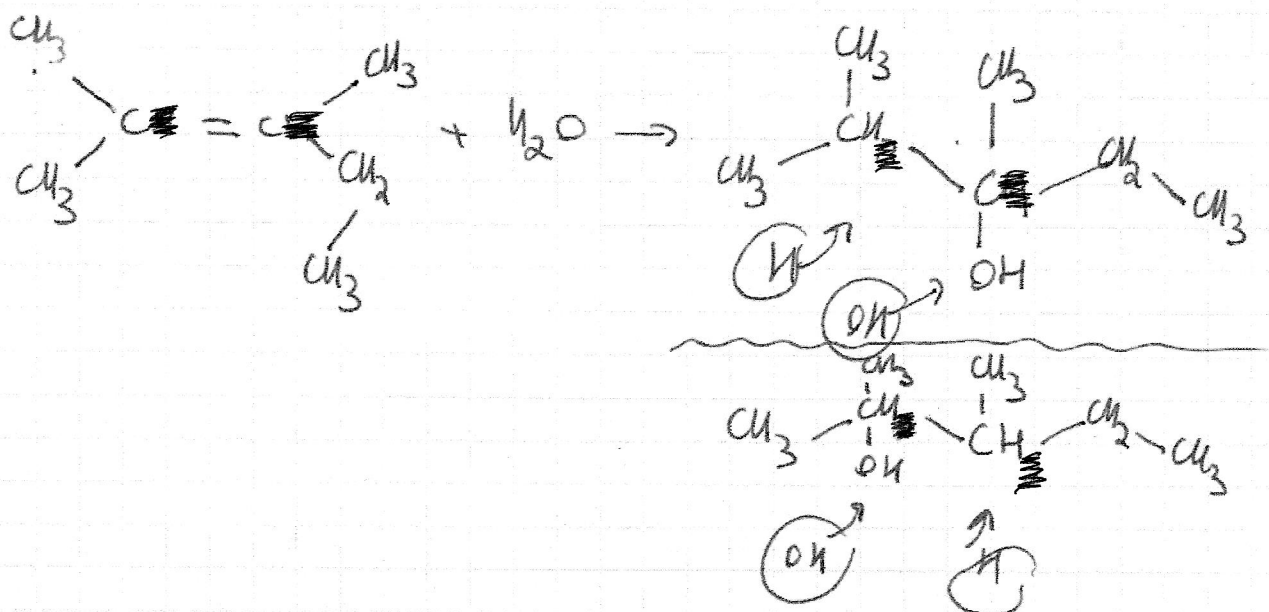 CH3
CH3
C = C
CH3
CH2
CH3
+ H2O →
CH3
CH3
CH3
CH
C
CH2
CH3
OH
H
OH
CH3
CH3
CH3
CH
CH
CH2
CH3
OH
OH
H